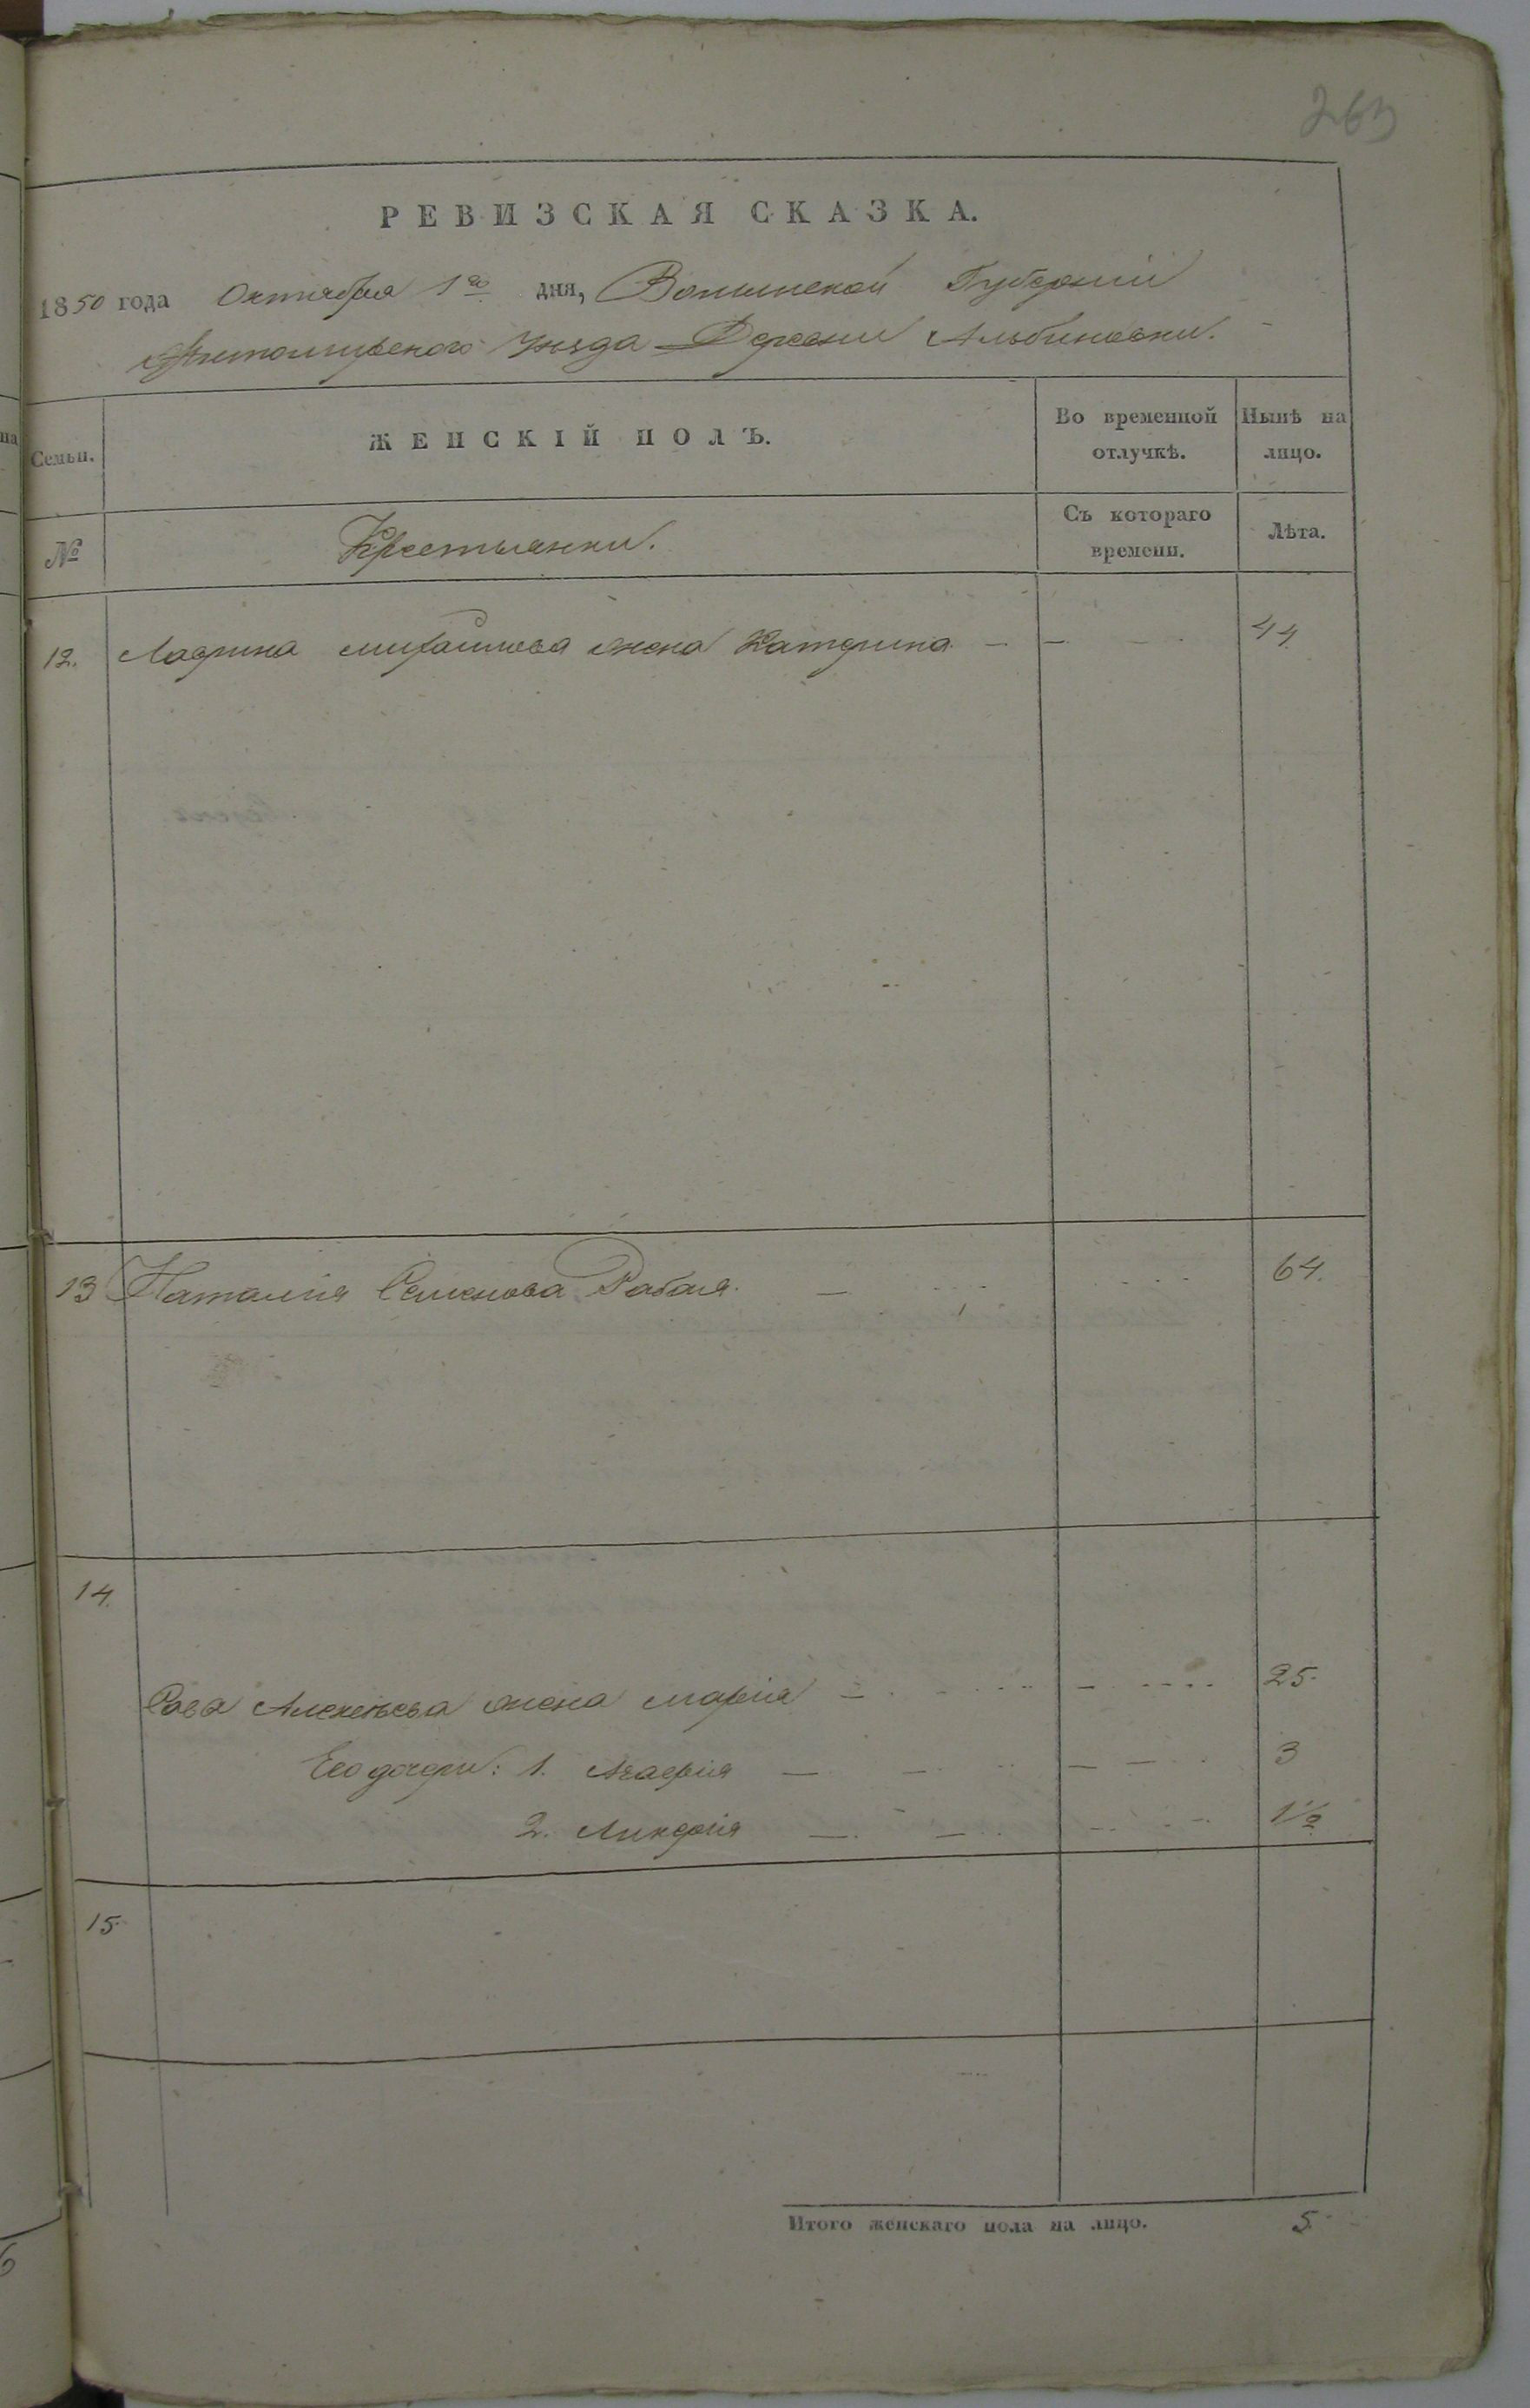 263
РЕВИЗСКАЯ СКАЗКА.
1850 года Октября 1го дня, Волынской Губерніи
Житомирского Уезда Деревни Альбиновки.
Семьи.
ЖЕНСКІЙ ПОЛЪ.
Во временной отлучкѣ.
Нынѣ на лицо.
№
Крестьянки.
Съ котораго времени.
Лѣта.
12. Лаврина Михайлова жена Катерина — — 44
13 Наталія Семенова Рабая — 64.
14.
Сава Алексеева жена Марія — — 25.
Его дочери: 1. Агафія — — — — 3
2. Ликерія — — 1½
15.
Итого женскаго пола на лицо. 5